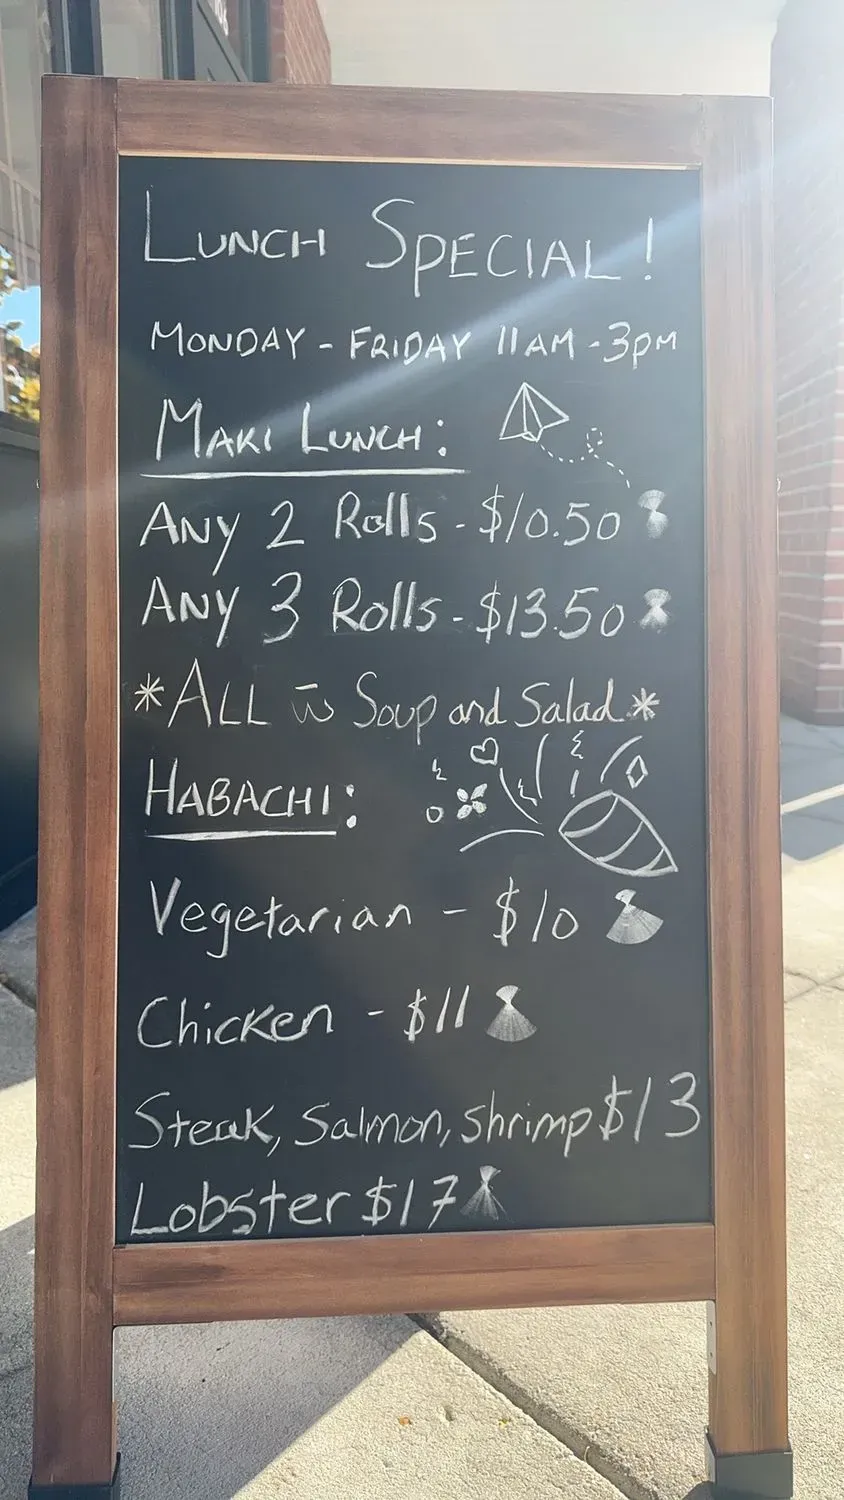 LUNCH SPECIAL!
MONDAY - FRIDAY 11AM - 3PM
MAKI LUNCH:
ANY 2 Rolls - $10.50
ANY 3 Rolls - $13.50
*ALL w Soup and Salad*
HABACHI:
Vegetarian - $10
Chicken - $11
Steak, Salmon, Shrimp $13
Lobster $17